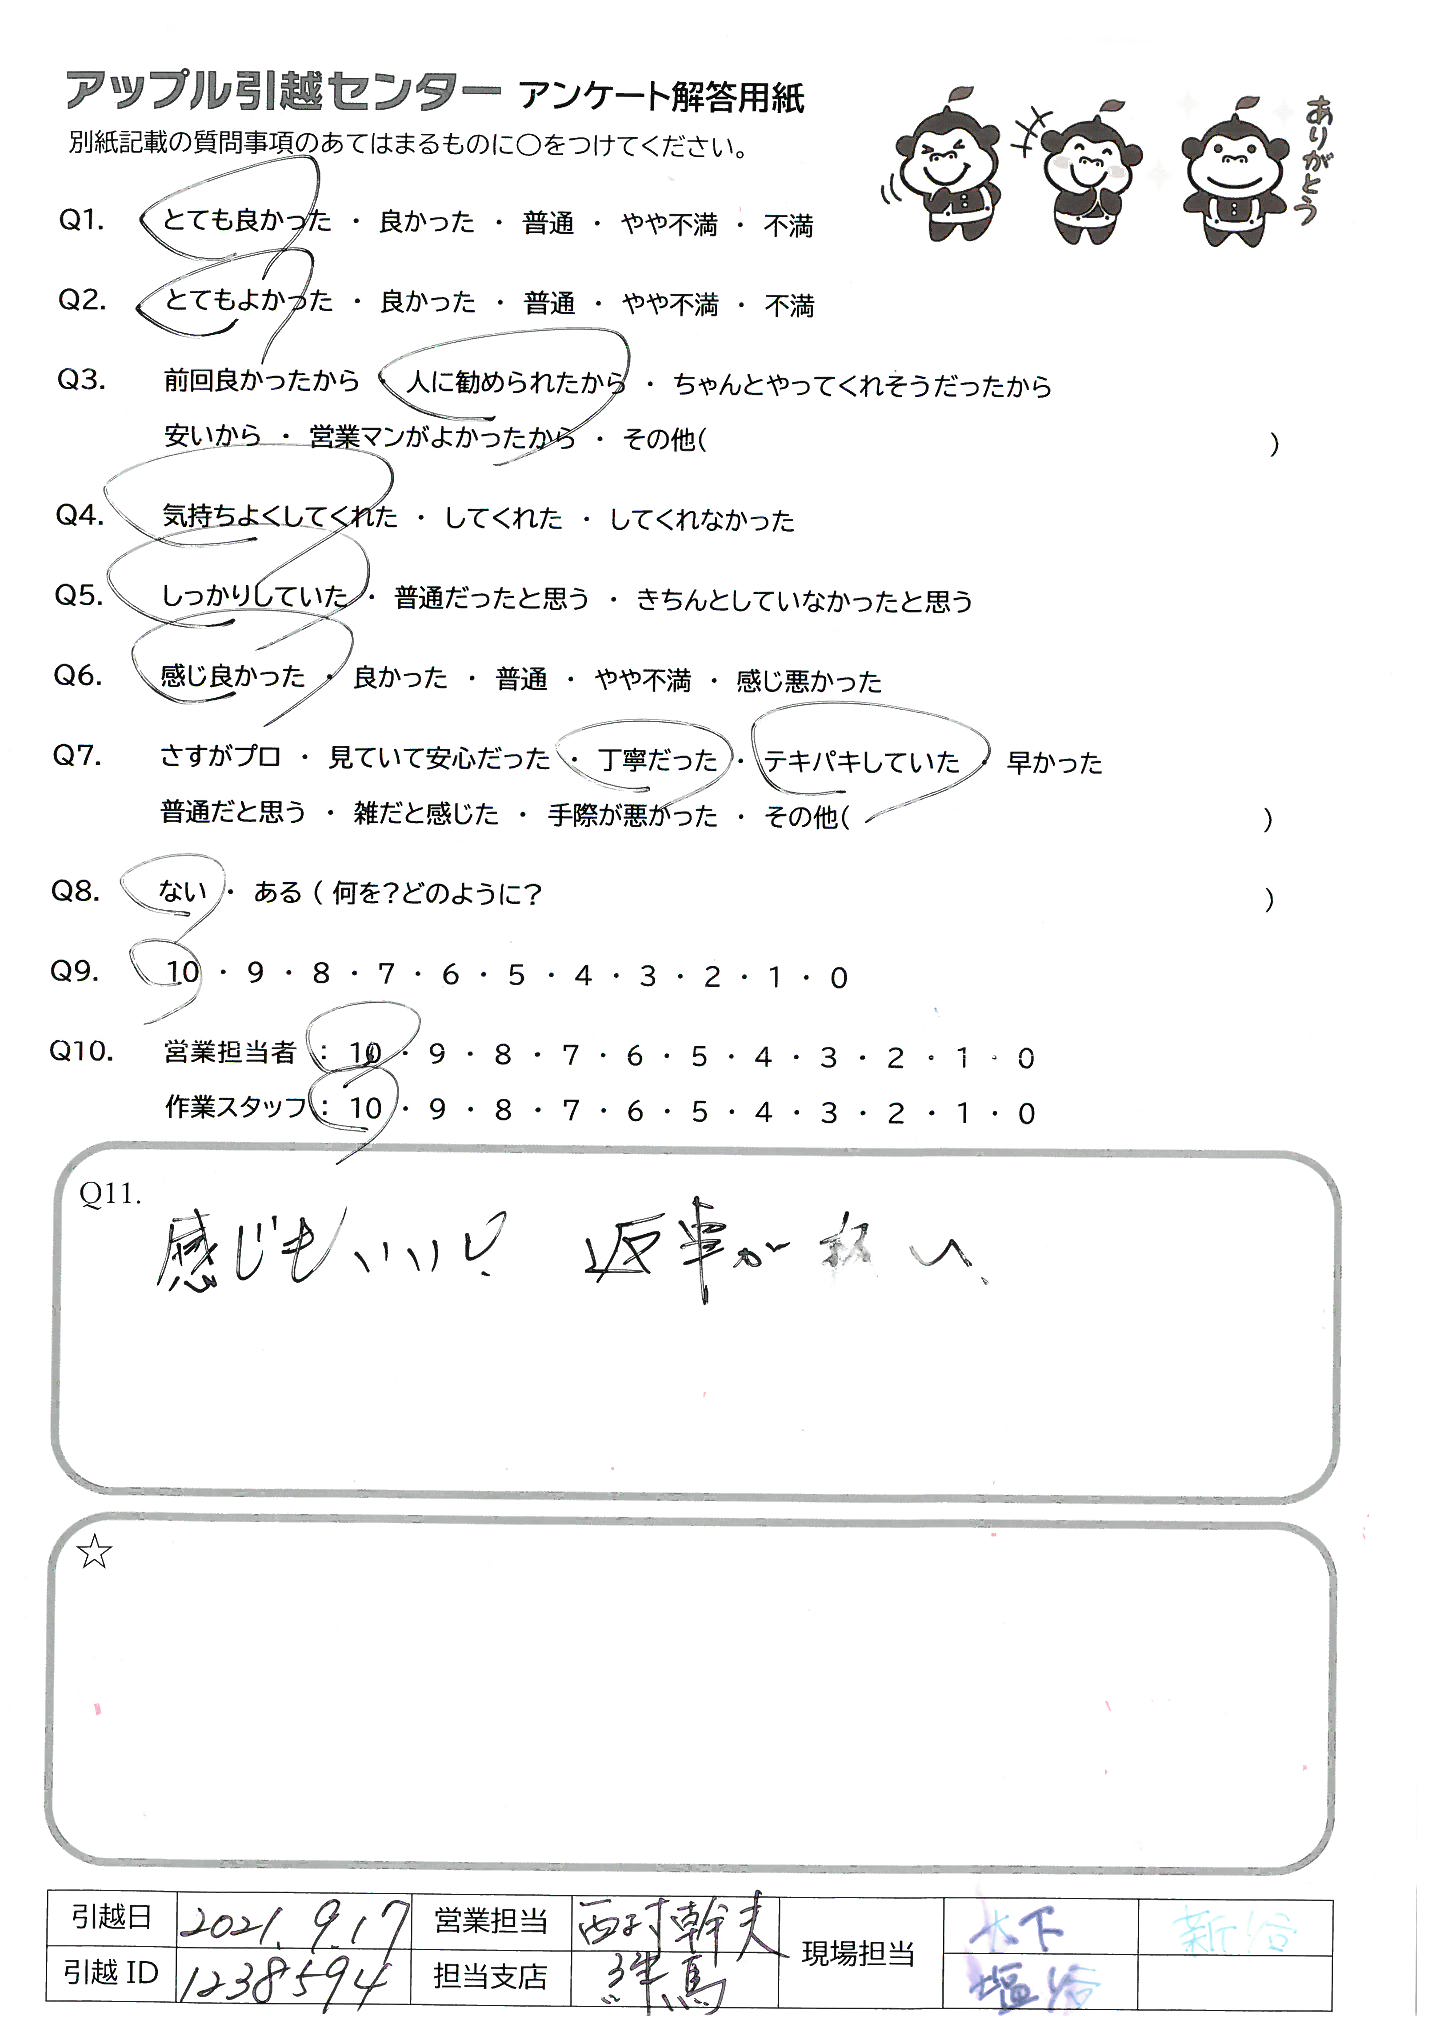 アップル引越センター アンケート解答用紙
別紙記載の質問事項のあてはまるものに○をつけてください。
ありがとう
Q1. とても良かった ・ 良かった ・ 普通 ・ やや不満 ・ 不満
Q2. とてもよかった ・ 良かった ・ 普通 ・ やや不満 ・ 不満
Q3. 前回良かったから ・ 人に勧められたから ・ ちゃんとやってくれそうだったから
安いから ・ 営業マンがよかったから ・ その他( )
Q4. 気持ちよくしてくれた ・ してくれた ・ してくれなかった
Q5. しっかりしていた ・ 普通だったと思う ・ きちんとしていなかったと思う
Q6. 感じ良かった ・ 良かった ・ 普通 ・ やや不満 ・ 感じ悪かった
Q7. さすがプロ ・ 見ていて安心だった ・ 丁寧だった ・ テキパキしていた ・ 早かった
普通だと思う ・ 雑だと感じた ・ 手際が悪かった ・ その他( )
Q8. ない ・ ある ( 何を?どのように? )
Q9. 10 ・ 9 ・ 8 ・ 7 ・ 6 ・ 5 ・ 4 ・ 3 ・ 2 ・ 1 ・ 0
Q10. 営業担当者 : 10 ・ 9 ・ 8 ・ 7 ・ 6 ・ 5 ・ 4 ・ 3 ・ 2 ・ 1 ・ 0
作業スタッフ : 10 ・ 9 ・ 8 ・ 7 ・ 6 ・ 5 ・ 4 ・ 3 ・ 2 ・ 1 ・ 0
Q11.
感じもいいし、返事が い、
☆
引越日 2021.9.17 営業担当 西村幹夫 現場担当 木下 新谷
引越ID 1238594 担当支店 群馬 塩谷